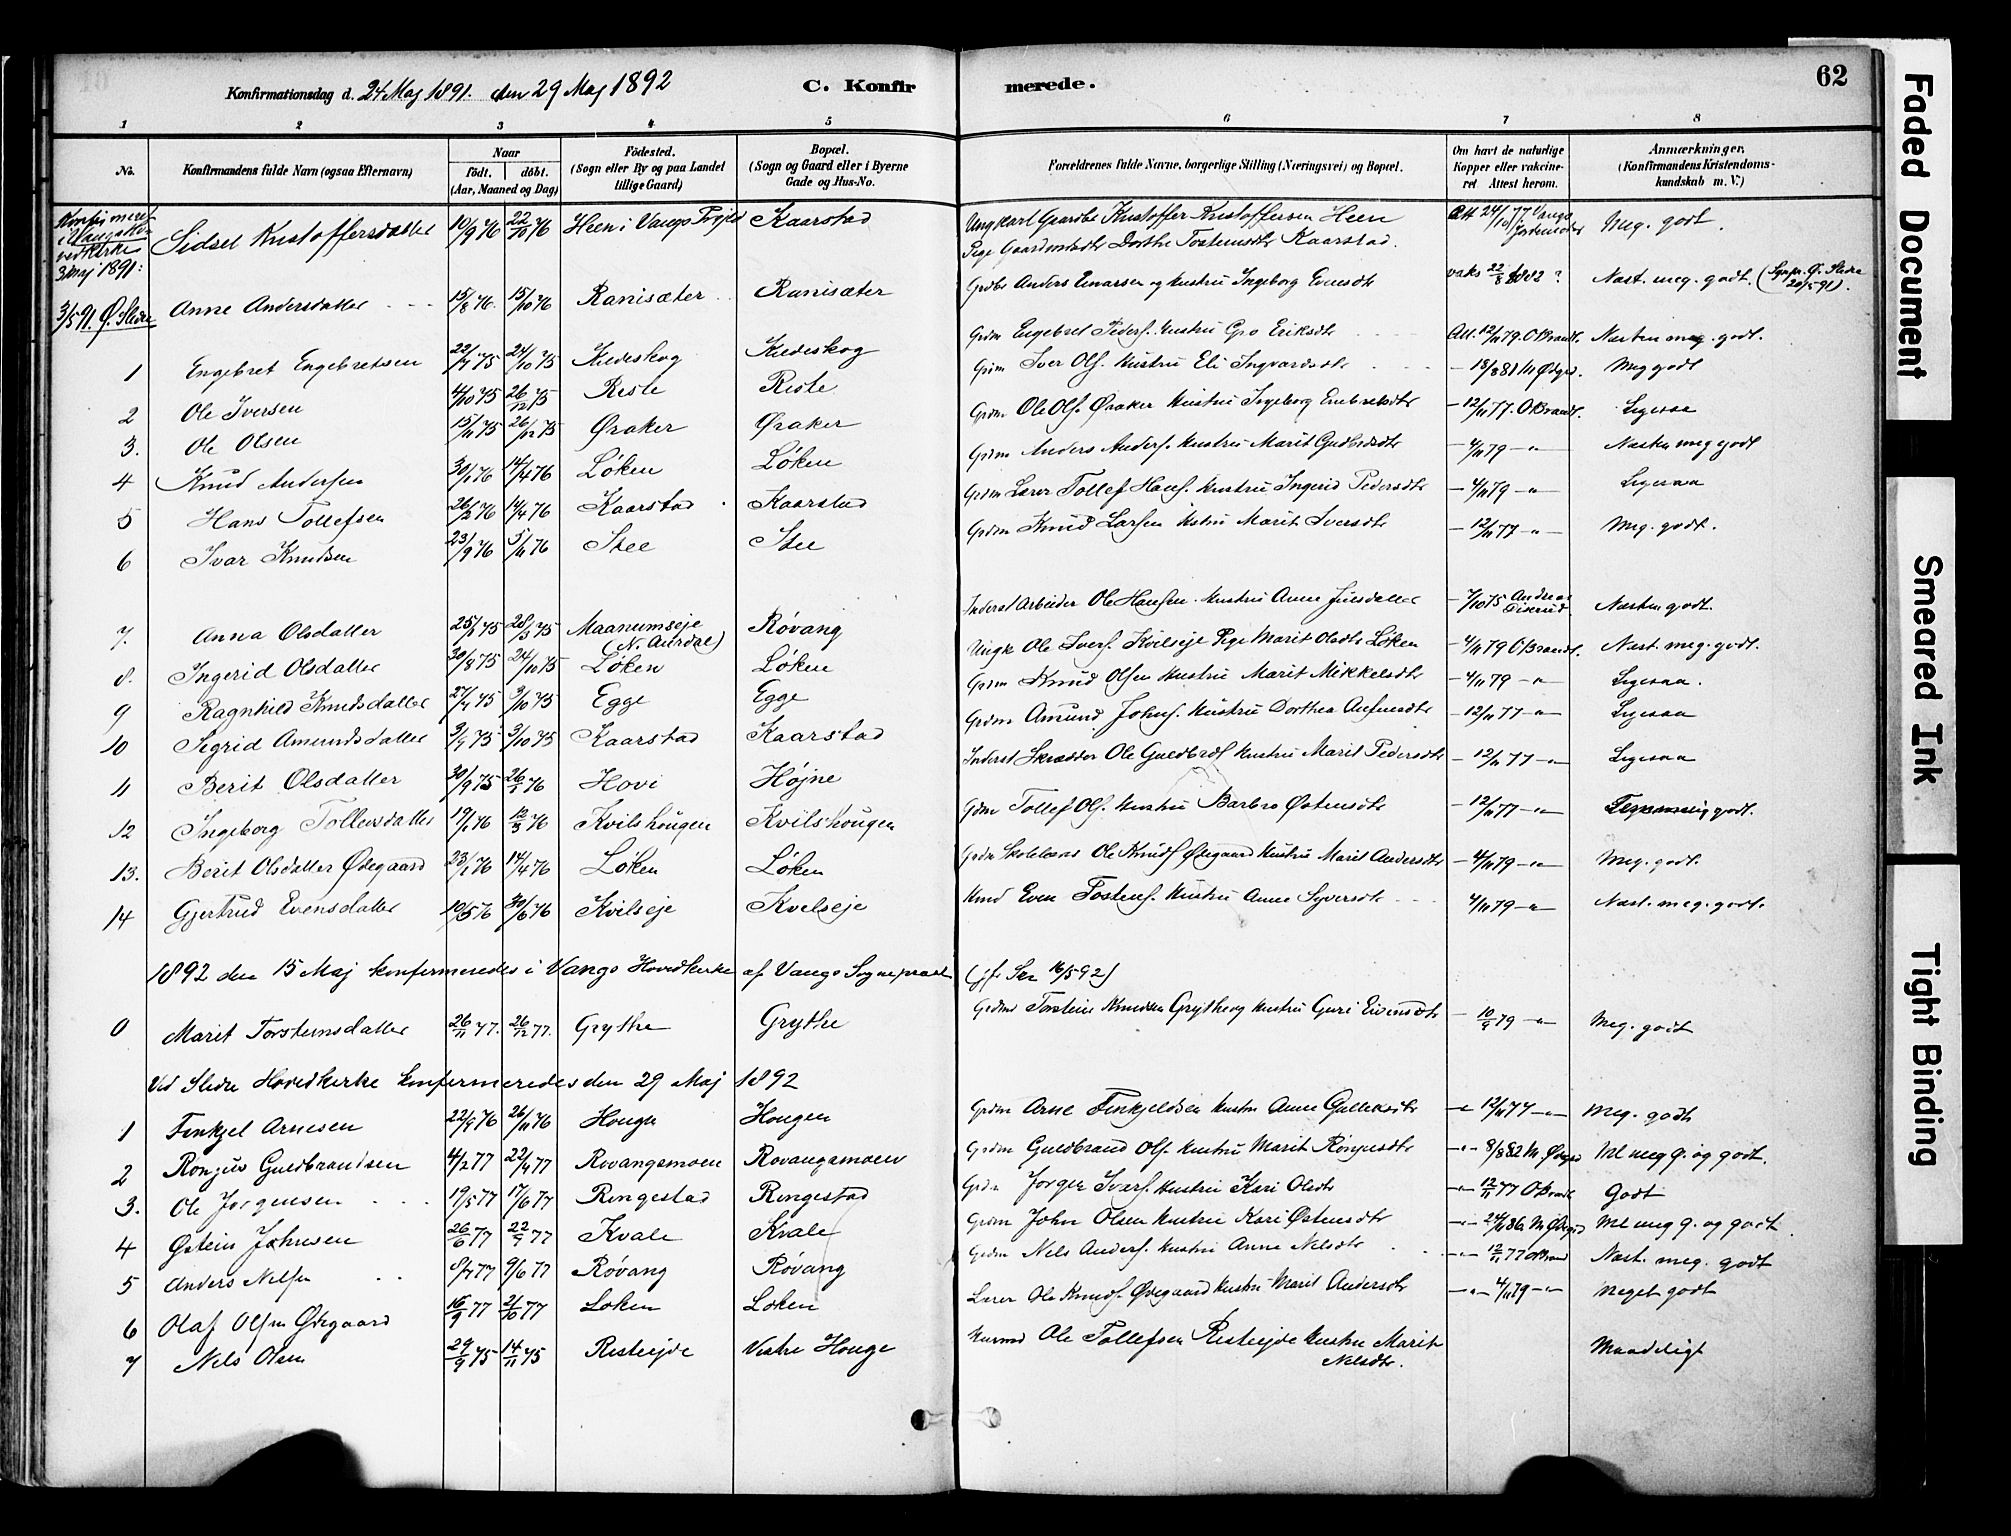 Konfirmationsdag d. 24 Maj 1891. den 29 Maj 1892 C. Konfirmerede. 62
1 2 3 4 5 6 7 8
No. Konfirmandens fulde Navn (ogsaa Efternavn) Naar født. døbt. (Aar, Maaned og Dag) Fødested. (Sogn eller By og paa Landet tillige Gaard) Bopæl. (Sogn og Gaard eller i Byerne Gade og Hus-No. Forældrenes fulde Navne, borgerlige Stilling (Næringsvei) og Bopæl. Om havt de naturlige Kopper eller vakcineret Attest herom. Anmærkninger. (Konfirmandens Kristendomskundskab m. V.)
Konfirmeret
3 Maj 1891: Sidsel Kristoffersdatter 10/9 76 22/10 76 Heen i Vangs Kaarstad Ungkarl Gaardbr Kristoffer Kristoffersen Heen Att 24/10 77 Vangs Meg. godt.
Pige Gaardmdtr Dorthe Tostensdtr Kaarstad.
3/5 91. Ø. Slidre Anne Andersdatter 15/8 76 15/10 76 Ranisæter Ranisæter Grdbr Anders Einarsen og Hustru Ingeborg Evensdtr vaks 22/8 1882 ? Næst. meg. godt. (Sgnpr. Ø. Slidre 20/5 91).
1 Engebret Engebretsen 22/7 75 24/10 75 Kudeskog Kudeskog Grdm Engebret Peders. Hustru Gro Eriksdtr Att. 12/11 79. O Brandt. Næsten meg. godt.
2 Ole Iversen 4/10 75 26/12 75 Riste Riste Grdm Iver Ols. Hustru Eli Ingvardsdtr - 18/8 81 M Ødgrd. Meg godt
3. Ole Olsen 15/11 75 26/12 75 Øraker Øraker Grdm Ole Ols. Øraker Hustru Ingeborg Embretsdtr - 12/11 77. O Brandt. Ligesaa
4 Knud Andersen 30/1 76 14/4 76 Løken Løken Grdm Anders Anders. Hustru Marit Gudbrdsdtr - 4/11 79 - " Næsten meg godt
5 Hans Tollefsen 26/2 76 14/4 76 Kaarstad Kaarstad Grdm Lærer Tollef Hans. Hustru Ingerid Pedersdtr - 4/11 79 - " - Ligesaa
6 Ivar Knudsen 23/9 76 5/11 76 Stee Stee Grdm Knud Larsen Hstru Marit Iversdtr - 12/11 77 - " - Meg. godt.
7. Anna Olsdatter 25/1 75 28/3 75 Maanumseje (N. Aurdal) Røvang Inderst Arbeider Ole Hansen Hustru Anne Juulsdatter - 7/10 75 Andreas Næsten godt.
8. Ingerid Olsdatter 30/8 75 24/11 75 Løken Løken Ungk Ole Ivers. Kvilseje Pige Marit Olsdtr Løken - 4/11 79 O Brandt. Næst. meg. godt.
9 Ragnhild Knudsdatter 27/7 75 3/10 75 Egge Egge Grdm Knud Olsen Hustru Marit Mikkelsdtr - 4/11 79 - " Ligesaa.
10 Sigrid Amundsdatter 3/9 75 3/10 75 Kaarstad Kaarstad Grdm Amund Johns. Hustru Dorthea Anfinsdtr - 12/11 77 - " - Ligesaa
11 Berit Olsdatter 30/9 75 26/3 76 Hovi Højne Inderst Skrædder Ole Guldbrds Hustru Marit Pedersdtr - 12/11 77 - " - Ligesaa
12 Ingeborg Tollevsdatter 19/1 76 12/3 76 Kvilshougen Kvilshougen Grdm Tollef Ols. Hustru Barbro Østensdtr - 12/11 77 - " - Temmelig godt.
13. Berit Olsdatter Ødegaard 23/1 76 14/4 76 Løken Løken Grdm Skolelærer Ole Knuds Ødegaard Hustru Marit Andersdtr - 4/11 79 - " - Meg. godt.
14 Gjertrud Evensdatter 10/5 76 30/6 76 Kvilseje Kvelseje Hmd Even Tostens. Hustru Anne Syversdtr 4/11 79 - " - Næst. meg. godt.
1892 den 15 Maj konfirmeredes i Vangs Hovedkirke af Vangs Sogneprest (jf. Skr 16/5 92)
0 Marit Torsteinsdatter 26/11 77. 26/12 77. Grythe Grythe Grdmd Torstein Knudsen Grytberg Hustru Guri Eivensdtr - 10/9 79 - " - Meg. godt
Ved Slidre Hovedkirke konfirmeredes den 29 Maj 1892
1 Finkjel Arnesen 22/9 76 26/11 76 Hougen Hougen Grdm Arne Finkjeldsen Hustru Anne Gulleksdtr - " 12/11 77 - " - Meg. godt
2 Rongus Guldbrandsen 4/2 77 22/4 77 Rovangsmoen Rovangsmoen Grdm Guldbrand Ols. Hustru Marit Rongusdtr - " - 8/8 82 M. Ødgrd Ml meg g. og godt.
3. Ole Jørgensen 19/5 77 17/6 77 Ringestad Ringestad Grdm Jørgen Ivers. Hustru Kari Olsdtr - " - 12/11 77 O Brandt Godt
4 Østein Johnsen 26/6 77 22/7 77 Kvale Kvale Grdm John Olsen Hustru Kari Østensdtr - " - 24/8 86 M Ødgrd Ml meg g. og godt.
5 Anders Nilsen 8/4 77 9/6 77 Røvang Røvang Grdm Nils Anders. Hustru Anne Nilsdtr - " - 12/11 77 O Brand Næst. meg. godt
6 Olaf Olsen Ødegaard 16/9 77 21/10 77 Loken Loken Lærer Ole Knuds. Ødegaard Hustru Marit Andersdtr - " - 4/11 79 - " - Meget godt
7 Nils Olsen 29/9 75 14/11 75 Risteejde Vestre Houge Husmd Ole Tollefsen Risteejde Hustru Marit Nilsdtr. Maadeligt
Faded Document
Smeared Ink
Tight Binding